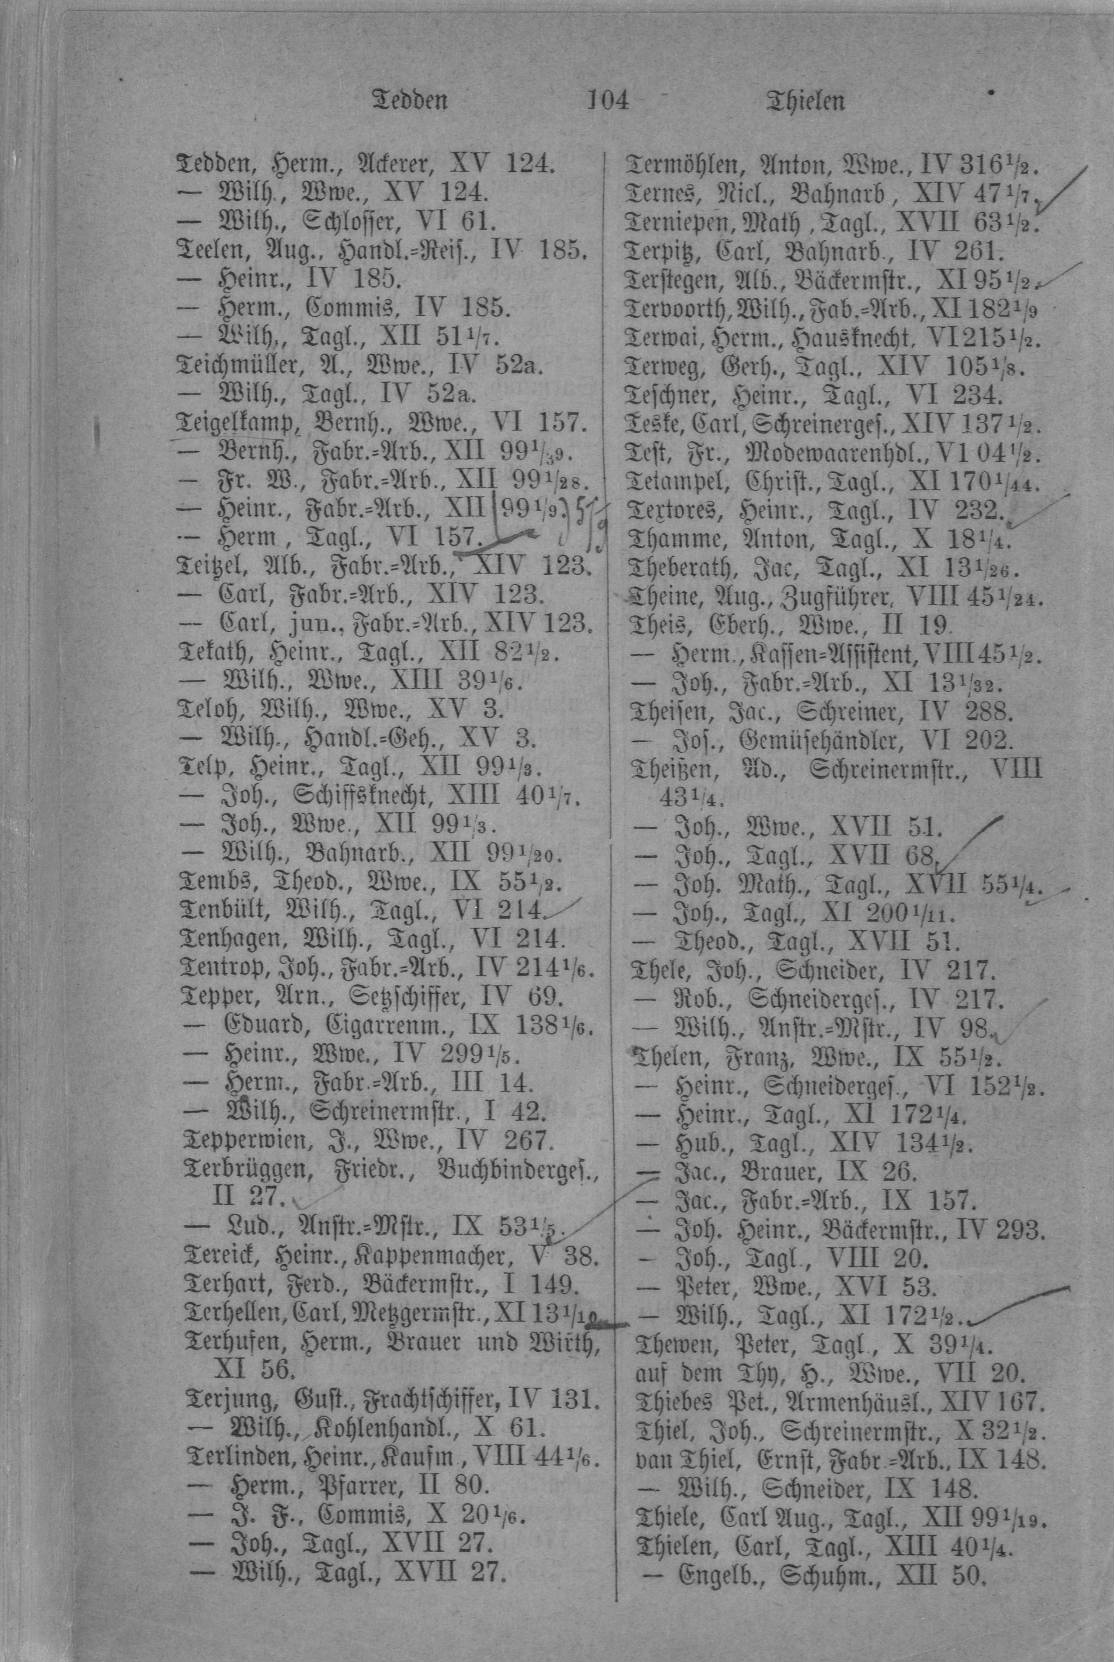 Tedden 104 Thielen
Tedden, Herm., Ackerer, XV 124.
— Wilh., Wwe., XV 124.
— Wilh., Schlosser, VI 61.
Teelen, Aug., Handl.=Reis., IV 185.
— Heinr., IV 185.
— Herm., Commis, IV 185.
— Wilh., Tagl., XII 51 1/7.
Teichmüller, A., Wwe., IV 52a.
— Wilh., Tagl., IV 52a.
Teigelkamp, Bernh., Wwe., VI 157.
— Bernh., Fabr.=Arb., XII 99 1/39.
— Fr. W., Fabr.=Arb., XII 99 1/28.
— Heinr., Fabr.=Arb., XII 99 1/9
— Herm, Tagl., VI 157.
Teitzel, Alb., Fabr.=Arb., XIV 123.
— Carl, Fabr.=Arb., XIV 123.
— Carl, jun., Fabr.=Arb., XIV 123.
Tekath, Heinr., Tagl., XII 82 1/2.
— Wilh., Wwe., XIII 39 1/6.
Teloh, Wilh., Wwe., XV 3.
— Wilh., Handl.=Geh., XV 3.
Telp, Heinr., Tagl., XII 99 1/3.
— Joh., Schiffsknecht, XIII 40 1/7.
— Joh., Wwe., XII 99 1/3.
— Wilh., Bahnarb., XII 99 1/20.
Tembs, Theod., Wwe., IX 55 1/2.
Tenbült, Wilh., Tagl., VI 214.
Tenhagen, Wilh., Tagl., VI 214.
Tentrop, Joh., Fabr.=Arb., IV 214 1/6.
Tepper, Arn., Setzschiffer, IV 69.
— Eduard, Cigarrenm., IX 138 1/6.
— Heinr., Wwe., IV 299 1/5.
— Herm., Fabr.=Arb., III 14.
— Wilh., Schreinermstr., I 42.
Tepperwien, J., Wwe., IV 267.
Terbrüggen, Friedr., Buchbinderges.,
II 27.
— Lud., Anstr.=Mstr., IX 53 1/5.
Tereick, Heinr., Kappenmacher, V 38.
Terhart, Ferd., Bäckermstr., I 149.
Terhellen, Carl, Metzgermstr., XI 13 1/10
Terhufen, Herm., Brauer und Wirth,
XI 56.
Terjung, Gust., Frachtschiffer, IV 131.
— Wilh., Kohlenhandl., X 61.
Terlinden, Heinr., Kaufm, VIII 44 1/6.
— Herm., Pfarrer, II 80.
— J. F., Commis, X 20 1/6.
— Joh., Tagl., XVII 27.
— Wilh., Tagl., XVII 27.
Termöhlen, Anton, Wwe., IV 316 1/2.
Ternes, Nicl., Bahnarb, XIV 47 1/7.
Terniepen, Math, Tagl., XVII 63 1/2.
Terpitz, Carl, Bahnarb., IV 261.
Terstegen, Alb., Bäckermstr., XI 95 1/2.
Tervoorth, Wilh., Fab.=Arb., XI 182 1/9
Terwai, Herm., Hausknecht, VI 215 1/2.
Terweg, Gerh., Tagl., XIV 105 1/8.
Teschner, Heinr., Tagl., VI 234.
Teske, Carl, Schreinerges., XIV 137 1/2.
Test, Fr., Modewaarenhdl., V1 04 1/2.
Tetampel, Christ., Tagl., XI 170 1/44.
Textores, Heinr., Tagl., IV 232.
Thamme, Anton, Tagl., X 18 1/4.
Theberath, Jac, Tagl., XI 13 1/26.
Theine, Aug., Zugführer, VIII 45 1/24.
Theis, Eberh., Wwe., II 19.
— Herm., Kassen=Assistent, VIII 45 1/2.
— Joh., Fabr.=Arb., XI 13 1/32.
Theisen, Jac., Schreiner, IV 288.
— Jos., Gemüsehändler, VI 202.
Theißen, Ad., Schreinermstr., VIII
43 1/4.
— Joh., Wwe., XVII 51.
— Joh., Tagl., XVII 68.
— Joh. Math., Tagl., XVII 55 1/4.
— Joh., Tagl., XI 200 1/11.
— Theod., Tagl., XVII 51.
Thele, Joh., Schneider, IV 217.
— Rob., Schneiderges., IV 217.
— Wilh., Anstr.=Mstr., IV 98.
Thelen, Franz, Wwe., IX 55 1/2.
— Heinr., Schneiderges., VI 152 1/2.
— Heinr., Tagl., XI 172 1/4.
— Hub., Tagl., XIV 134 1/2.
— Jac., Brauer, IX 26.
— Jac., Fabr.=Arb., IX 157.
— Joh. Heinr., Bäckermstr., IV 293.
— Joh., Tagl., VIII 20.
— Peter, Wwe., XVI 53.
— Wilh., Tagl., XI 172 1/2.
Thewen, Peter, Tagl, X 39 1/4.
auf dem Thy, H., Wwe., VII 20.
Thiebes Pet., Armenhäusl., XIV 167.
Thiel, Joh., Schreinermstr., X 32 1/2.
van Thiel, Ernst, Fabr.=Arb., IX 148.
— Wilh., Schneider, IX 148.
Thiele, Carl Aug., Tagl., XII 99 1/19.
Thielen, Carl, Tagl., XIII 40 1/4.
— Engelb., Schuhm., XII 50.